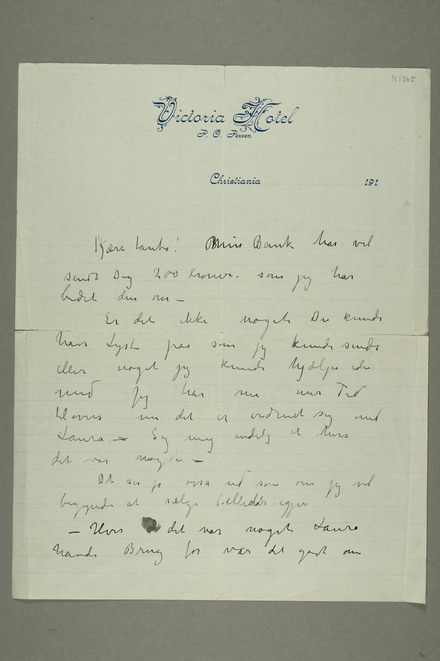 N 1065
Victoria Hotel
P. O. Persen
Christiania 191
Kjære Tante! Min Bank har vel
sendt Dig 200 Kroner som jeg har
bedet den om –
Er det ikke noget Du kunde
have Lyst paa som jeg kunde sende
eller noget jeg kunde hjælpe
med Jeg har nu mer Tid
nu det er ordnet sig med
Laura – Sig mig endelig
det var noget –
Det ser jo ud som om jeg vil
begynde at sælge Billeder igjen
– Hvis det var noget Laura
havde Brug for var det godt om